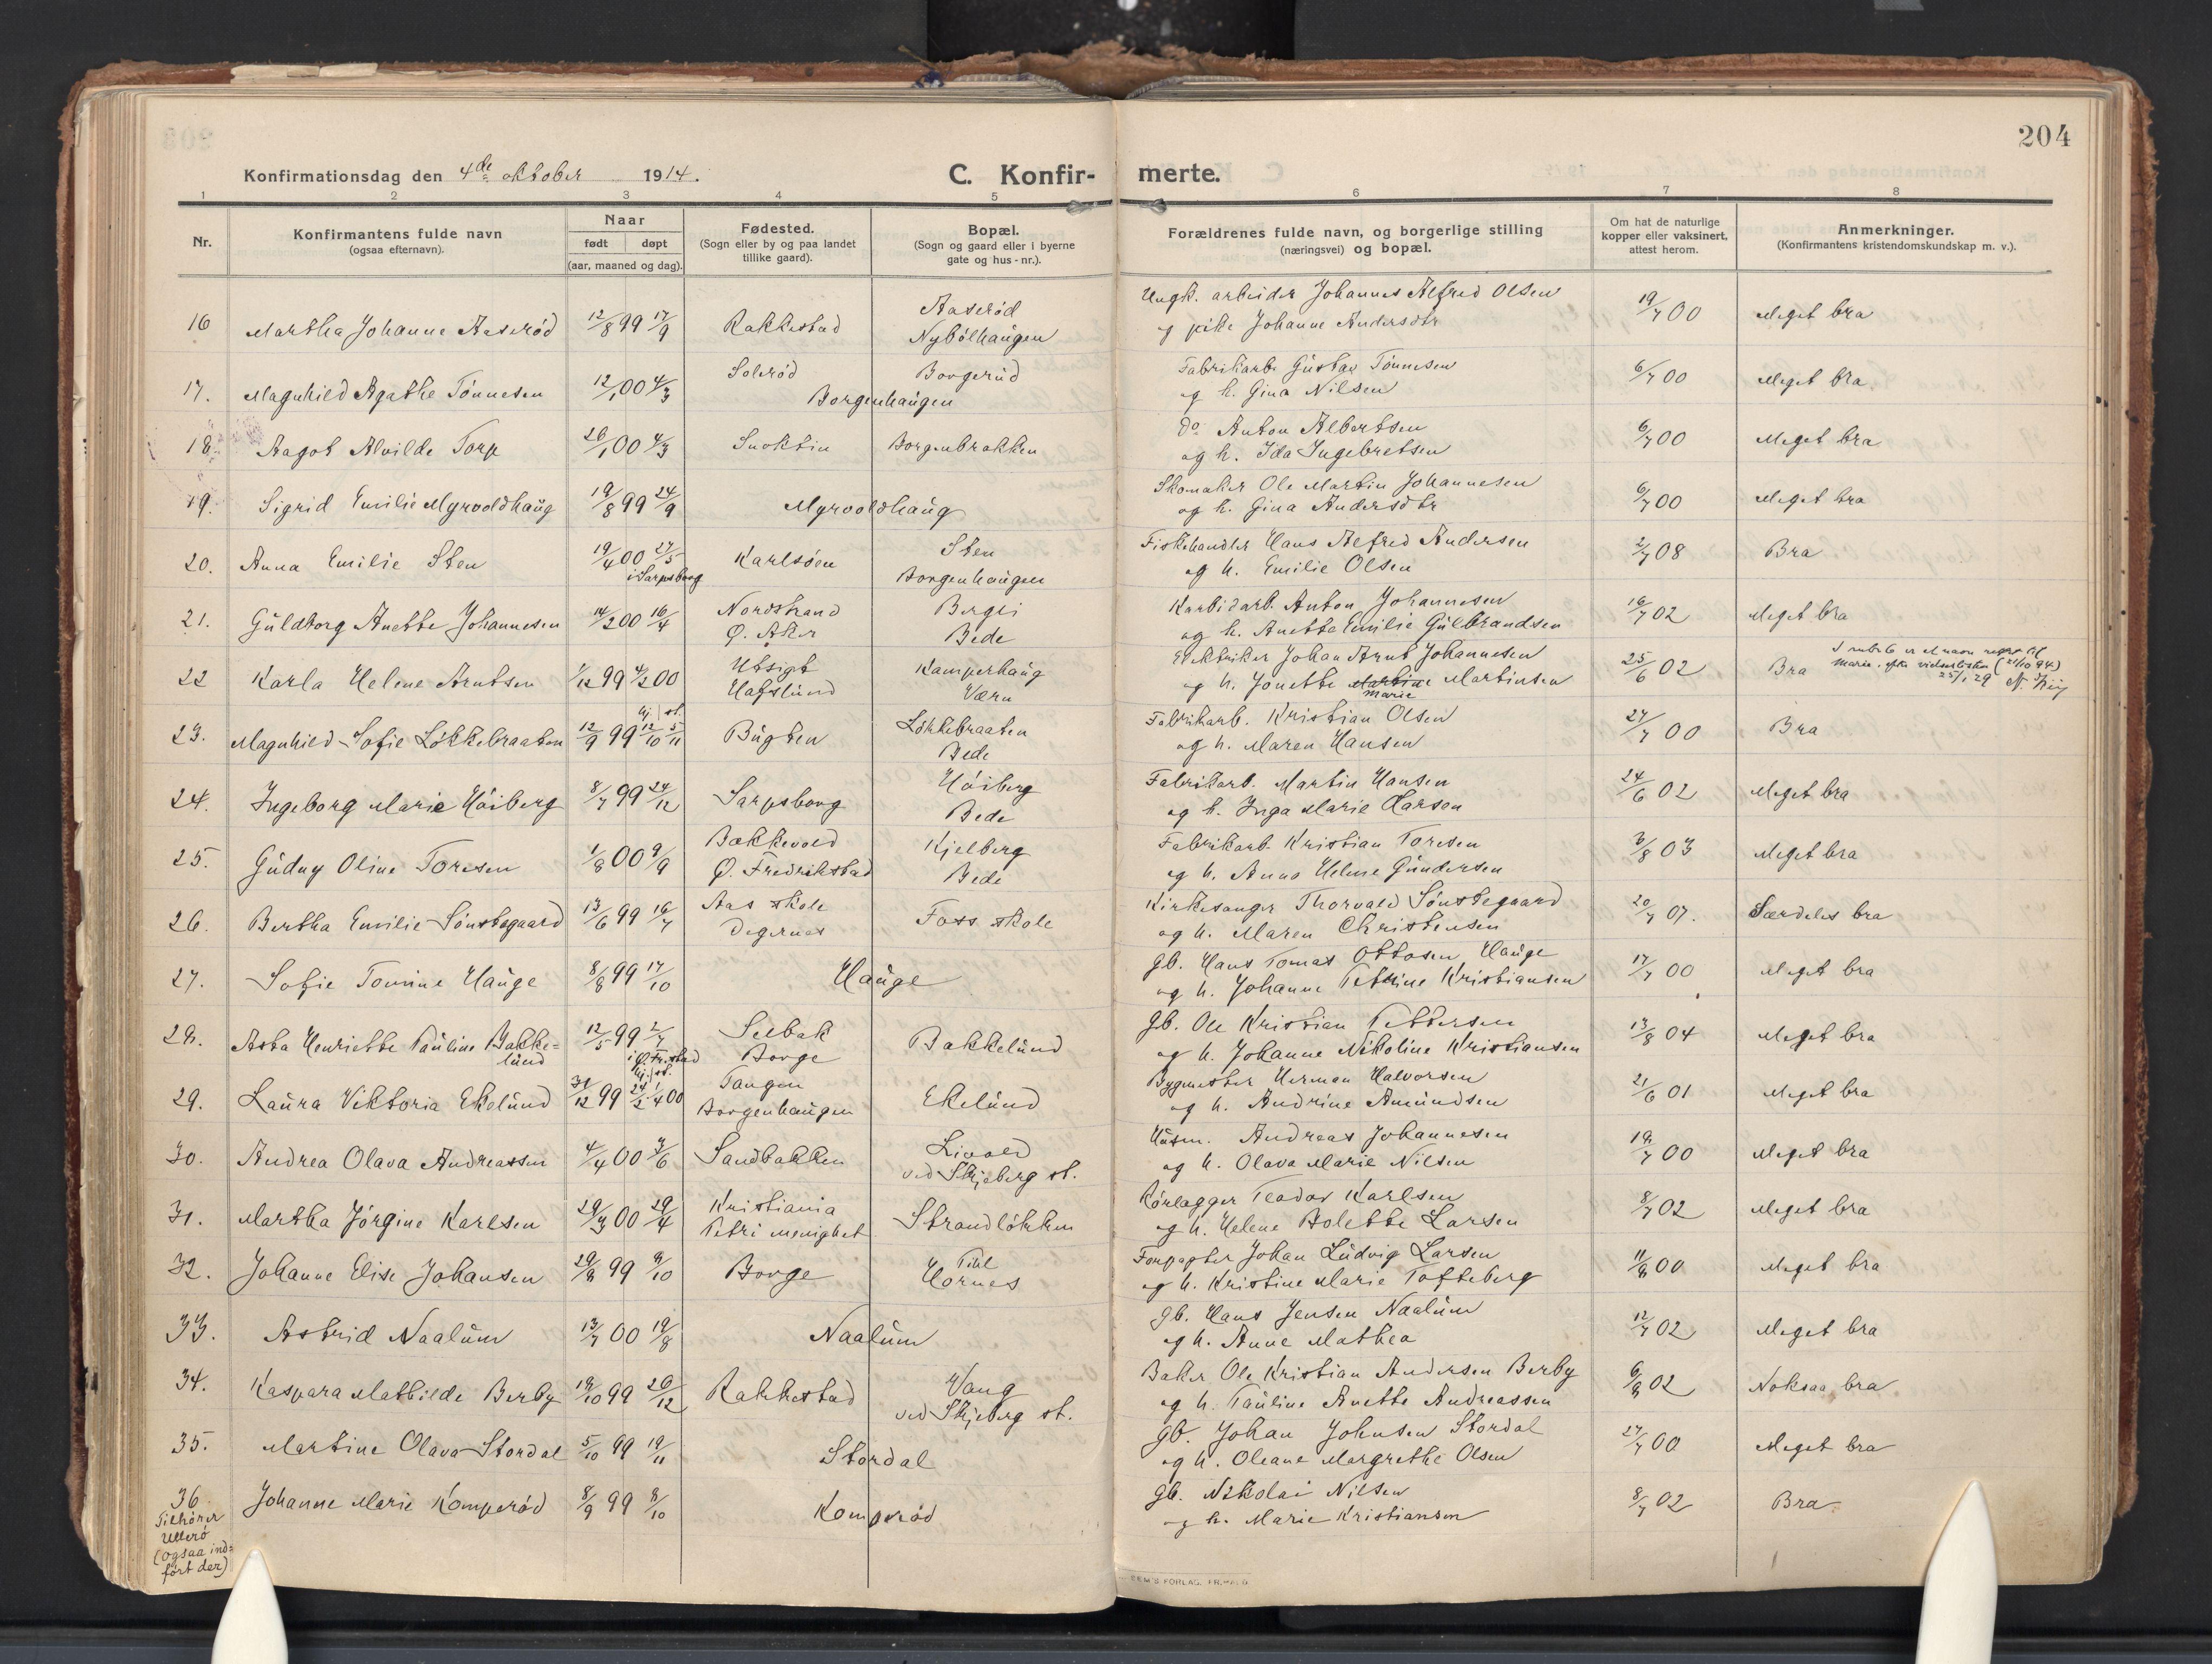 204
Konfirmationsdag den 4de oktober 1914.
C. Konfir-
merte.
1 2 3 4 5 6 7 8
Nr.
Konfirmantens fulde navn
(ogsaa efternavn).
Naar
født døpt
(aar, maaned og dag).
Fødested.
(Sogn eller by og paa landet
tillike gaard).
Bopæl.
(Sogn og gaard eller i byerne
gate og hus-nr.).
Forældrenes fulde navn, og borgerlige stilling
(næringsvei) og bopæl.
Om hat de naturlige
kopper eller vaksinert,
attest herom.
Anmerkninger.
(Konfirmantens kristendomskundskap m. v.).
Aaserød Ungk. arbeider Johannes Alfred Olsen
16 Martha Johanne Aaserød 12/8 99 17/9 Rakkestad Nybölhaugen og pike Johanne Andersdtr 19/7 00 Meget bra
Solerød Borgerud Fabrikarb. Gustav Tönnesen
17. Magnhild Agathe Tönnesen 12/1 00 4/3 Borgenhaugen og h. Gina Nilsen 6/7 00 Meget bra
do. Anton Albertsen
18. Aagot Alvilde Torp 26/1 00 4/3 Borgenbrakken og h. Ida Ingebretsen 6/7 00 Meget bra
Skomaker Ole Martin Johannesen
19. Sigrid Emilie Myrvoldhaug 19/8 99 24/9 Myrvoldhaug og h. Gina Andersdtr 6/7 00 Meget bra
Sten Fiskehandler Hans Alfred Andersen
20. Anna Emilie Sten 19/4 00 27/5 i Sarpsborg Karlsöen Borgenhaugen og h. Emilie Olsen 2/7 08 Bra
Nordstrand Bergli Karbidarb. Anton Johannesen
21. Guldborg Anette Johannesen 14/2 00 16/4 Ø. Aker Bede og h. Anette Emilie Gulbrandsen 16/7 02 Meget bra
Utsigt Kamperhaug Elektriker Johan Arnt Johannesen
22 Karla Helene Arntsen 1/12 99 4/2 00 Hafslund Værn og h. Jonette Martine Marie Martinsen 25/6 02 Bra
hj. st. Løkkebraaten Fabrikarb. Kristian Olsen
23. Magnhild Sofie Løkkebraaten 12/9 99 12/10 5/11 Bugten Bede og h. Maren Hansen 27/7 00 Bra
Höiberg Fabrikarb. Martin Hansen
24. Ingeborg Marie Höiberg 8/7 99 24/12 Sarpsborg Bede og h. Inga Marie Larsen 24/6 02 Meget bra
Bakkevold Kjelberg Fabrikarb. Kristian Toresen
25. Gudny Oline Toresen 1/8 00 9/9 Ø. Fredrikstad Bede og h. Anna Helene Gundersen 3/8 03 Meget bra
Aas skole Kirkesanger Thorvald Sönstegaard
26. Bertha Emilie Sönstegaard 13/6 99 16/7 Degernes Foss skole og h. Maren Christensen 20/7 07. Særdeles bra
gb. Hans Tomas Ottosen Hauge
27. Sofie Tomine Hauge 8/8 99 17/10 Hauge og h. Johanne Petrine Kristiansen 17/7 00 Meget bra
Selbak gb. Ole Kristian Pettersen
28. Asta Henriette Pauline Bakke=
lund 12/5 99 2/7 i Ø. Fr.stad Borge Bakkelund og h. Johanne Nikoline Kristiansen 13/8 04 Meget bra
hj. st. Tangen Bygmester Herman Halvorsen
29. Laura Viktoria Ekelund 31/12 99 24/2 1/4 00 Borgenhaugen Ekelund og h. Andrine Amundsen 21/6 01 Meget bra
Livold Husm. Andreas Johannesen
30. Andrea Olava Andreassen 4/4 00 3/6 Sandbakken ved Skjeberg st. og h. Olava Marie Nilsen 19/7 00 Meget bra
Kristiania Rörlægger Teodor Karlsen
31. Martha Jörgine Karlsen 29/3 00 29/4 Petri menighet Strandløkken og h. Helene Bolette Larsen 8/7 02 Meget bra
Forpagter Johan Ludvig Larsen
32. Johanne Elise Johansen 29/8 99 9/10 Borge Hornes og h. Kristine Marie Tofteberg 11/8 00 Meget bra
gb. Hans Jensen Naalum
33. Astrid Naalum 13/7 00 19/8 Naalum og h. Anne Mathea 12/7 02 Meget bra
Vang Baker Ole Kristian Andersen Berby
34. Kaspara Mathilde Berby 19/10 99 26/12 Rakkestad ved Skjeberg st. og h. Pauline Anette Andreassen 6/8 02 Noksaa bra
gb. Johan Johnsen Stordal
35. Martine Olava Stordal 5/10 99 19/11 Stordal og h. Oleane Margrethe Olsen 27/7 00 Meget bra
gb. Nikolai Nilsen
36 Johanne Marie Komperød 8/9 99 8/10 Komperød og h. Marie Kristiansen 8/7 02 Bra
Tilhører
Ullerø
(ogsaa ind=
ført der)